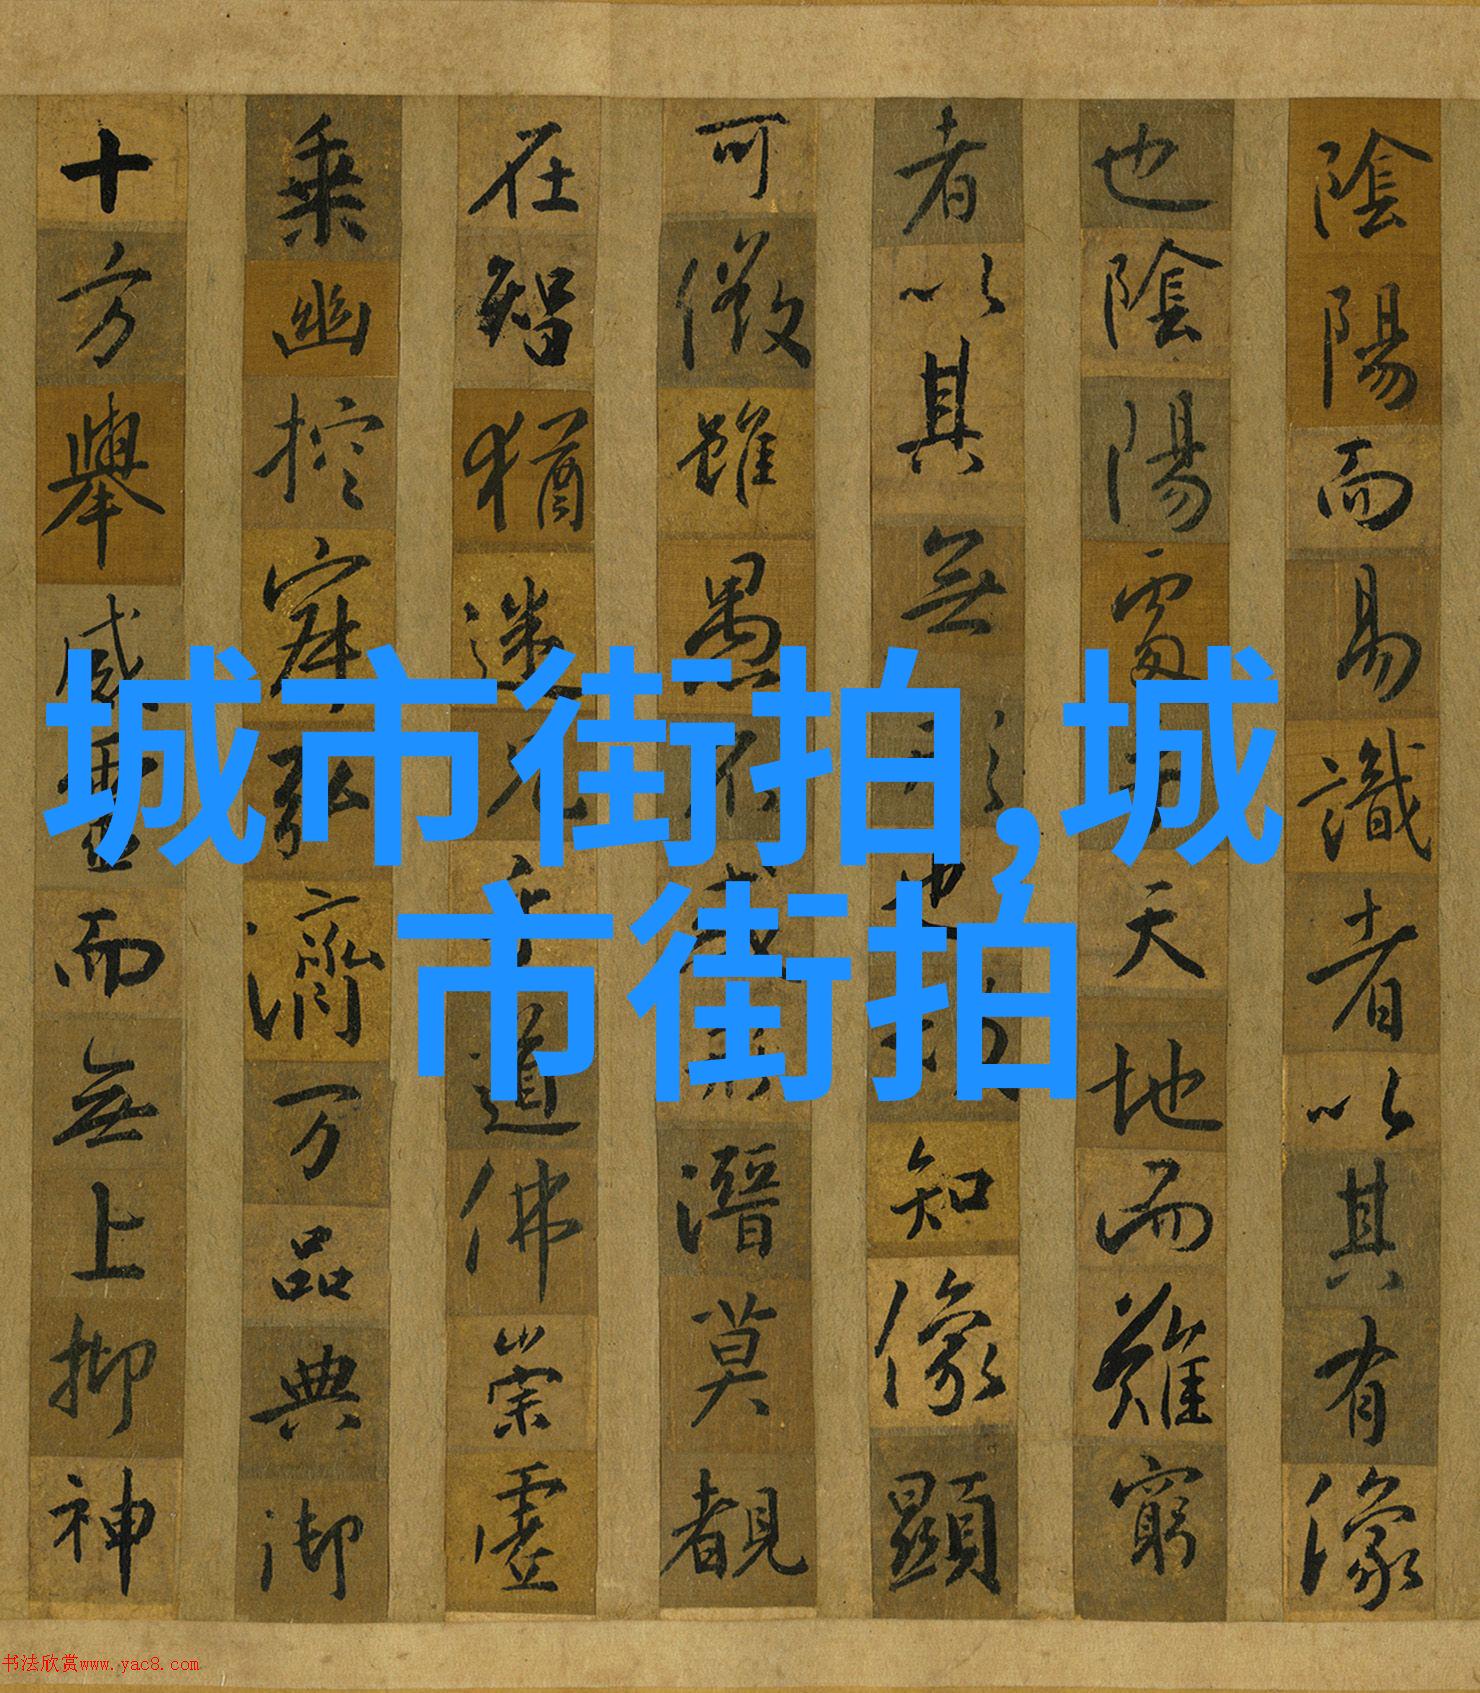 陰陽而易識者以其有像
也陰陽處天地而難窮
者以其無形也知像顯
可徵雖愚不惑形潛莫覩
在智猶迷況乎道佛崇虛
乗幽控寂弘濟万品典御
十方舉威靈而無上抑神
城市街拍,城
市街拍
书法欣赏www.yac8.com